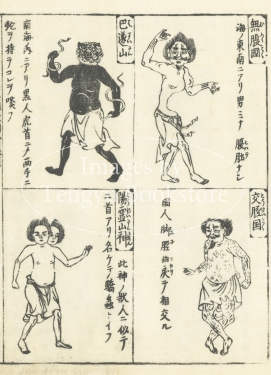 無腹國
海ノ東南ニアリ男ミナ腹肚ナシ
巴遂山
南海内ニアリ黒人虎首ニメ両手ニ
蛇ヲ持テコレヲ喰フ
交脛国
国人脚脛曲戻テ相交ル
山神
此神ノ状人ニ似テ
二首アリ名ケテ驕蟲トイフ
Images
Bookstore